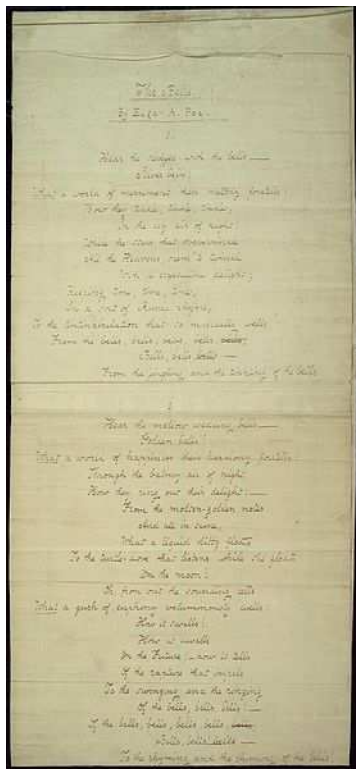 The Bells.
By Edgar A. Poe.
1.
Hear the sledges with the bells —
Silver bells!
What a world of merriment their melody foretells!
How they tinkle, tinkle, tinkle,
In the icy air of night!
While the stars that oversprinkle
All the Heavens seem to twinkle
With a crystalline delight;
Keeping time, time, time,
In a sort of Runic rhyme,
To the tintinabulation that so musically wells
From the bells, bells, bells, bells,
Bells, bells, bells —
From the jingling and the tinkling of the bells.
2
Hear the mellow wedding bells —
Golden bells!
What a world of happiness their harmony foretells!
Through the balmy air of night
How they ring out their delight! —
From the molten-golden notes
And all in tune,
What a liquid ditty floats
To the turtle-dove that listens while she gloats
On the moon!
Oh, from out the sounding cells
What a gush of euphony voluminously wells!
How it swells!
How it dwells
On the Future! — how it tells
Of the rapture that impels
To the swinging and the ringing
Of the bells, bells, bells! —
Of the bells, bells, bells, bells,
Bells, bells, bells —
To the rhyming and the chiming of the bells!